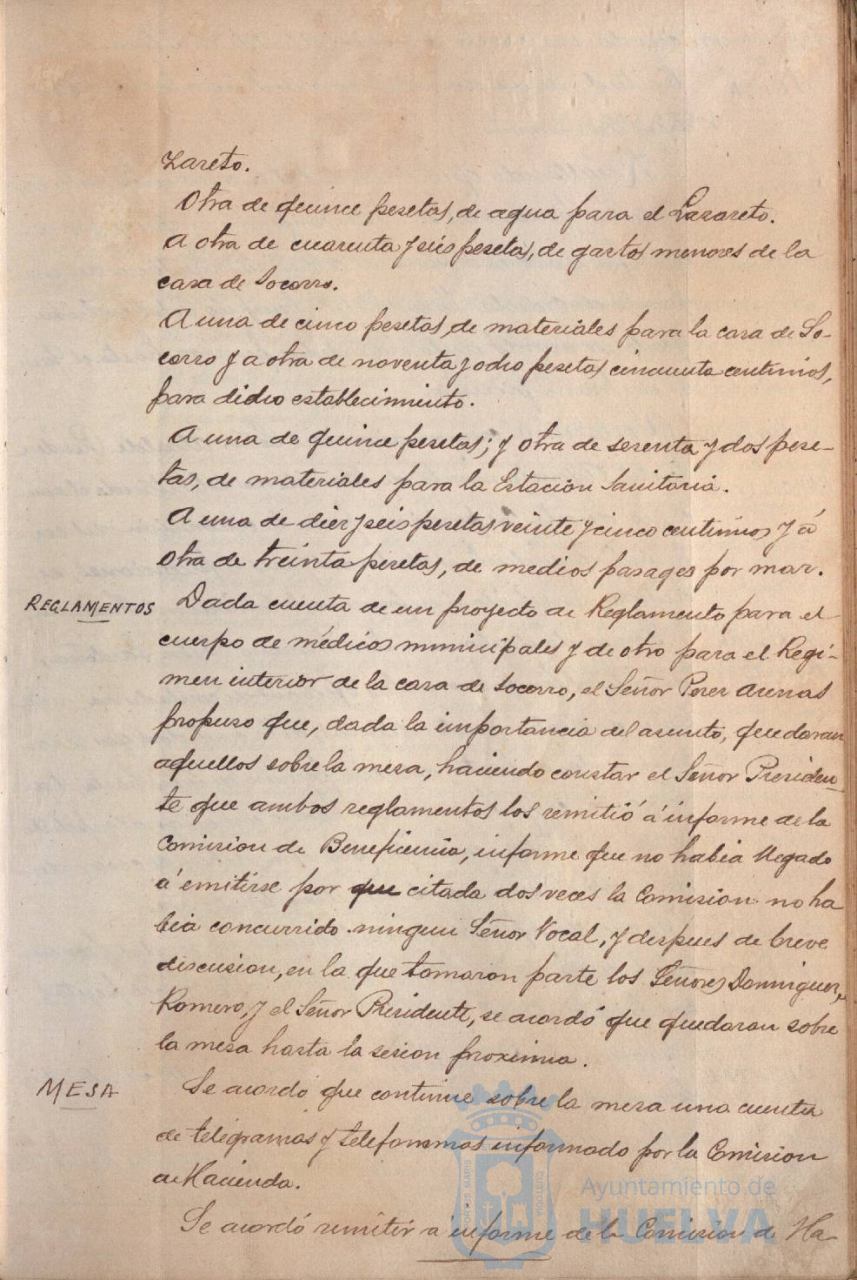 zareto.
Otra de quince pesetas, de agua para el Lazareto.
A otra de cuarenta y seis pesetas, de gastos menores de la
casa de Socorro.
A una de cinco pesetas, de materiales para la casa de So-
corro y a otra de noventa y ocho pesetas cincuenta centimos,
para dicho establecimiento.
A una de quince pesetas; y otra de sesenta y dos pese-
tas, de materiales para la Estación Sanitaria.
A una de diez y seis pesetas veinte y cinco centimos y á
otra de treinta pesetas, de medios pasages por mar.
REGLAMENTOS
Dada cuenta de un proyecto de Reglamento para el
cuerpo de médicos municipales y de otro para el Regi-
men interior de la casa de Socorro, el Señor Perez Arenas
propuso que, dada la importancia del asunto, quedaran
aquellos sobre la mesa, haciendo constar el Señor Presiden-
te que ambos reglamentos los remitió á informe de la
Comision de Beneficencia, informe que no habia llegado
á emitirse por que citada dos veces la Comision no ha
bia concurrido ningun Señor Vocal, y despues de breve
discusion, en la que tomaron parte los Señores Dominguez,
Romero, y el Señor Presidente, se acordó que quedaran sobre
la mesa hasta la sesion proxima.
MESA
Se acordó que continue sobre la mesa una cuenta
de telegramas y telefonemas informado por la Comision
de Hacienda.
Se acordó remitir a informe de la Comision de Ha-
Ayuntamiento de
HUELVA